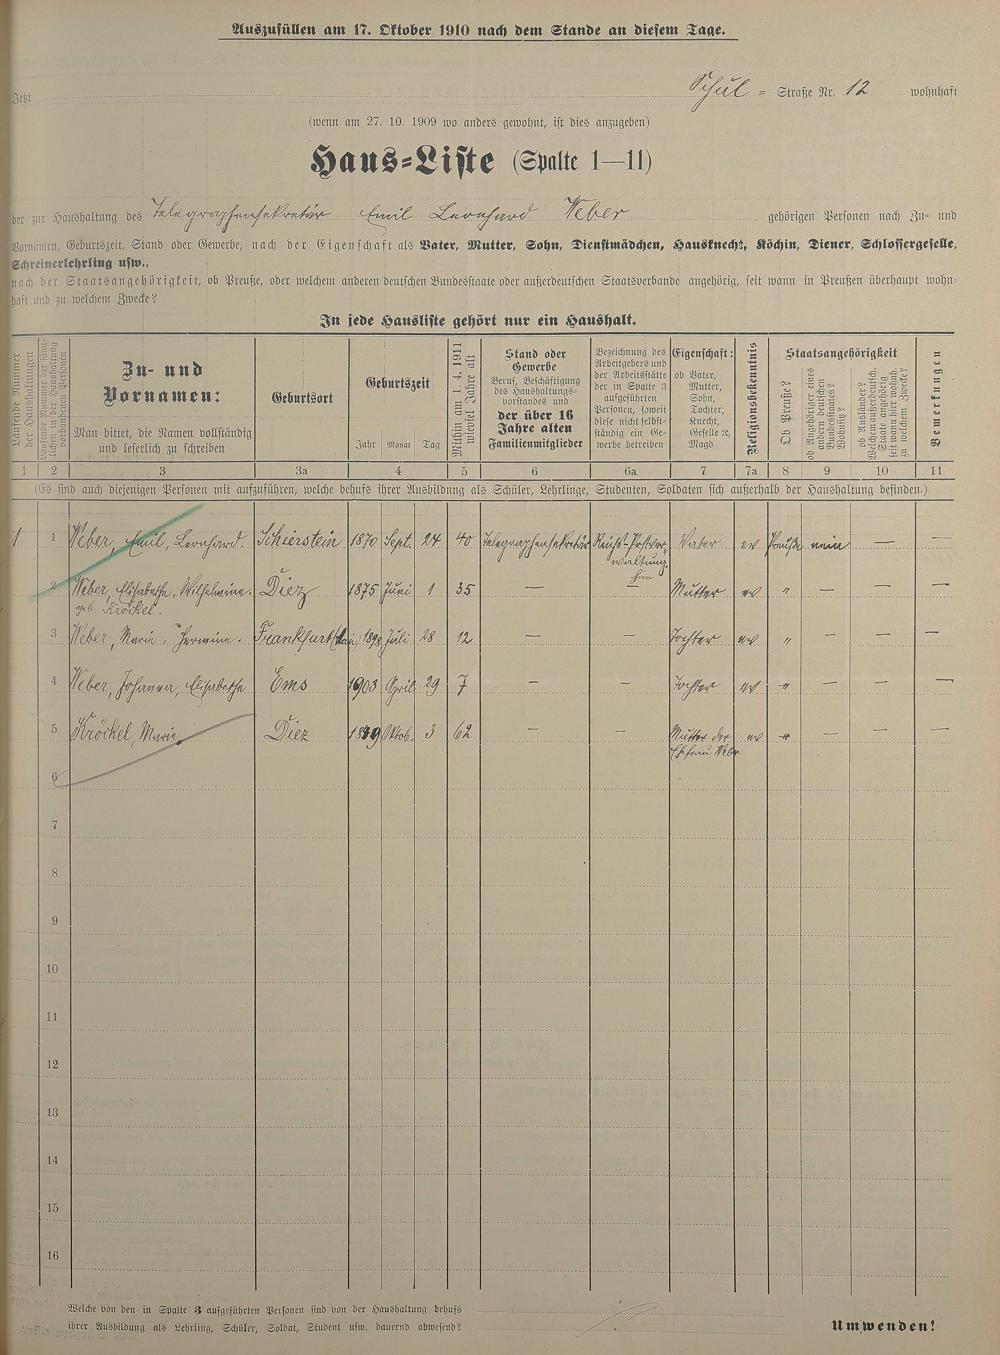 Auszufüllen am 17. Oktober 1910 nach dem Stande an diesem Tage.
Jetzt Schul = Straße Nr. 12 wohnhaft
(wenn am 27. 10. 1909 wo anders gewohnt, ist dies anzugeben)
Haus=Liste (Spalte 1—11)
der zur Haushaltung des Telegraphensekretär Emil Leonhard Weber gehörigen Personen nach Zu= und
Vornamen, Geburtszeit, Stand oder Gewerbe, nach der Eigenschaft als Vater, Mutter, Sohn, Dienstmädchen, Hausknecht, Köchin, Diener, Schlossergeselle,
Schreinerlehrling usw.,
nach der Staatsangehörigkeit, ob Preuße, oder welchem anderen deutschen Bundesstaate oder außerdeutschen Staatsverbande angehörig, seit wann in Preußen überhaupt wohn=
haft und zu welchem Zwecke?
In jede Hausliste gehört nur ein Haushalt.
Laufende Nummer der Haushaltungen
Laufende Nummer der sämtlichen in der Haushaltung vorhandenen Personen
Zu- und
Vornamen:
Man bittet, die Namen vollständig
und leserlich zu schreiben
Geburtsort
Geburtszeit
Jahr Monat Tag
Mithin am 1. 4. 1911
wieviel Jahre alt
Stand oder
Gewerbe
Beruf, Beschäftigung
des Haushaltungs-
vorstandes und
der über 16
Jahre alten
Familienmitglieder
Bezeichnung des
Arbeitgebers und
der Arbeitsstätte
der in Spalte 3
aufgeführten
Personen, soweit
diese nicht selbst-
ständig ein Ge-
werbe betreiben
Eigenschaft:
ob Vater,
Mutter,
Sohn,
Tochter,
Knecht,
Geselle ꝛc,
Magd
Religionsbekenntnis
Staatsangehörigkeit
Ob Preuße?
ob Angehöriger eines
andern deutschen
Bundesstaates?
Wohnsitz?
ob Ausländer?
Welchem außerdeutsch.
Staate angehörig
seit wann hier wohnh.
zu welchem Zwecke?
Bemerkungen
1 2 3 3a 4 5 6 6a 7 7a 8 9 10 11
(Es sind auch diejenigen Personen mit aufzuführen, welche behufs ihrer Ausbildung als Schüler, Lehrlinge, Studenten, Soldaten sich außerhalb der Haushaltung befinden.)
1 1 Weber, Emil, Leonhard. Schierstein 1870 Sept. 24 40 Telegraphensekretär Reichs-Postver- Vater ev Preuße nein — —
waltung
hier
2 Weber, Elisabethe, Wilhelmine. Diez 1875 Juni 1 35 — — Mutter ev " — — —
geb Kröckel.
3 Weber, Marie, Hermine. Frankfurt/Main 1898 Juli 28 12 — — Tochter ev " — — —
4 Weber, Johanna, Elisabethe Ems 1903 April 29 7 — — Tochter ev " — — —
5 Kröckel, Marie, Diez 1849 Oktob. 3 62 — — Mutter der ev " — — —
Ehefrau Weber
6
7
8
9
10
11
12
13
14
15
16
Welche von den in Spalte 3 aufgeführten Personen sind von der Haushaltung behufs
ihrer Ausbildung als Lehrling, Schüler, Soldat, Student usw. dauernd abwesend?
Umwenden!